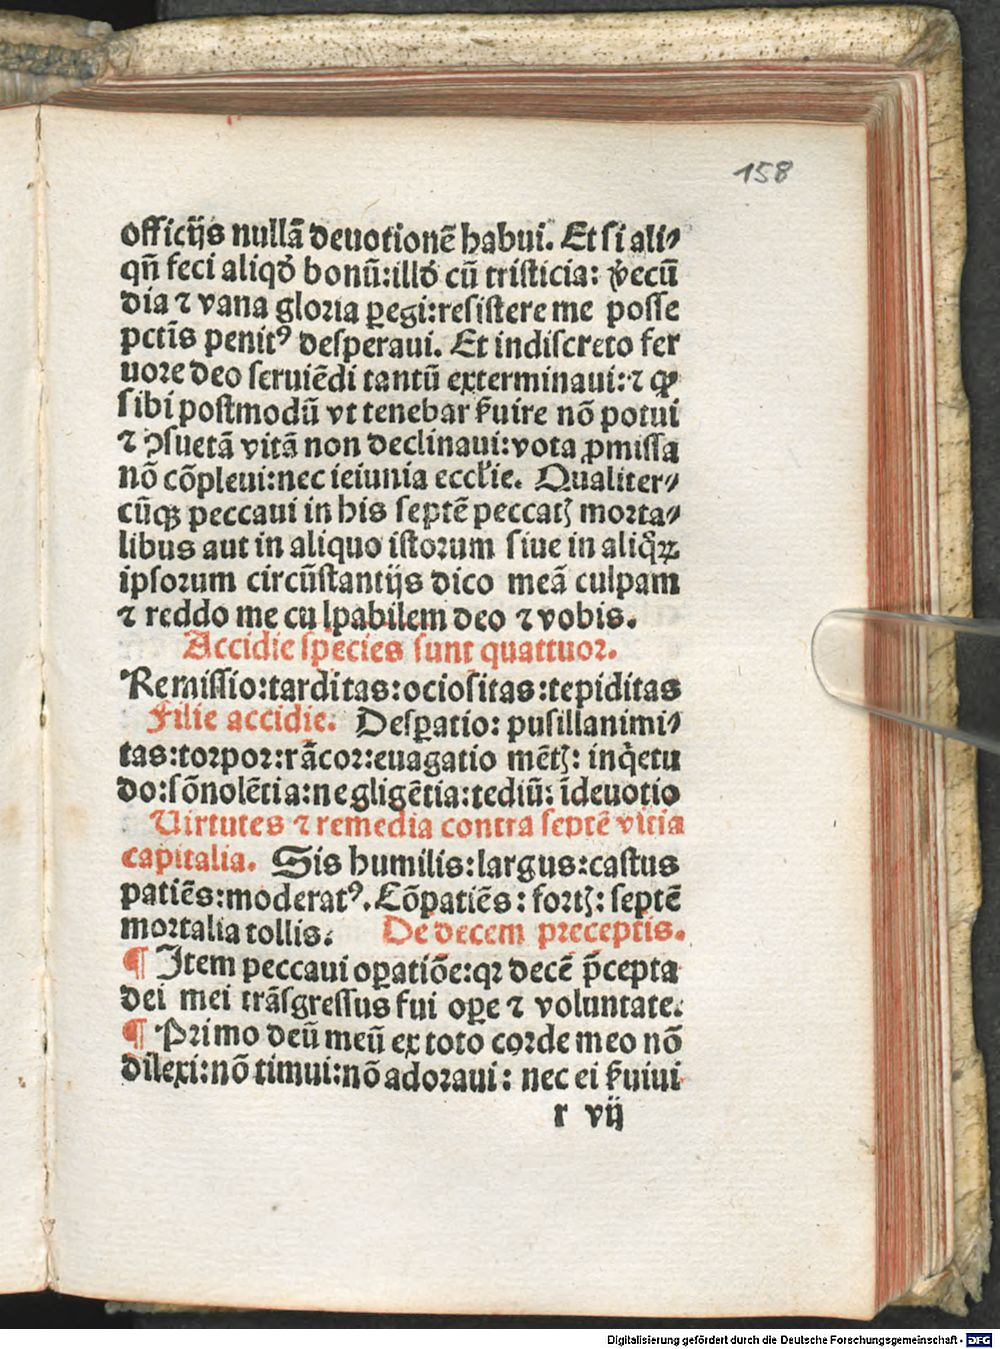 158
officijs nullā deuotionē habui. Et si ali⸗
qn̄ feci aliqd̓ bonū: illd̓ cū tristicia: v̓ecū
dia ⁊ vana gloria ꝑegi: resistere me posse
pctīs penitꝰ desperaui. Et indiscreto fer
uore deo seruiēdi tantū exterminaui: ⁊ ꝙ
sibi postmodū vt tenebar s̓uire nō potui
⁊ ꝯsuetā vitā non declinaui: vota ꝓmissa
nō cōpleui: nec ieiunia eccl̓ie. Qualiter⸗
cūqꝫ peccaui in his septē peccatꝭ morta⸗
libus aut in aliquo istorum siue in aliq̄ꝝ
ipsorum circūstantijs dico meā culpam
⁊ reddo me culpabilem deo ⁊ vobis.
Accidie species sunt quattuor.
Remissio: tarditas: ociositas: tepiditas
Filie accidie. Desꝑatio: pusillanimi⸗
tas: torpor: rācor: euagatio mētꝭ: inq̓etu
do: sōnolētia: negligētia: tediū: īdeuotio
Uirtutes ⁊ remedia contra septē vitia
capitalia. Sis humilis: largus: castus
patiēs: moderatꝰ. Cōpatiēs: fortꝭ: septē
mortalia tollis. De decem preceptis.
¶ Item peccaui oꝑatiōe: qꝛ decē p̄cepta
dei mei trāsgressus fui oꝑe ⁊ voluntate.
¶ Primo deū meū ex toto corde meo nō
dilexi: nō timui: nō adoraui: nec ei s̓uiui
r vij
Digitalisierung gefördert durch die Deutsche Forschungsgemeinschaft - DFG